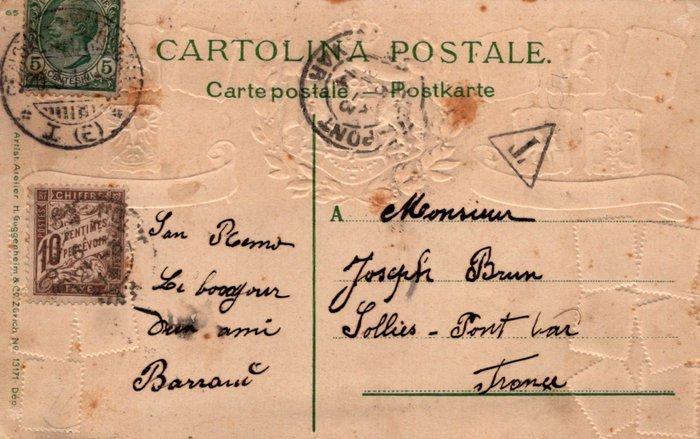 65
CARTOLINA POSTALE.
Carte postale Postkarte
5 CENTESIMI 5
(3) T
PONT
T
CHIFFRE
10 CENTIMES
A PERCEVOIR
TAXE
POSTES
San Remo
Le bonjour
d'un ami
A Monsieur
Joseph Brun
Sollies-Pont Var
France
Artist. Atelier H. Guggenheim & Co. Zürich. No. 13171 Dép.